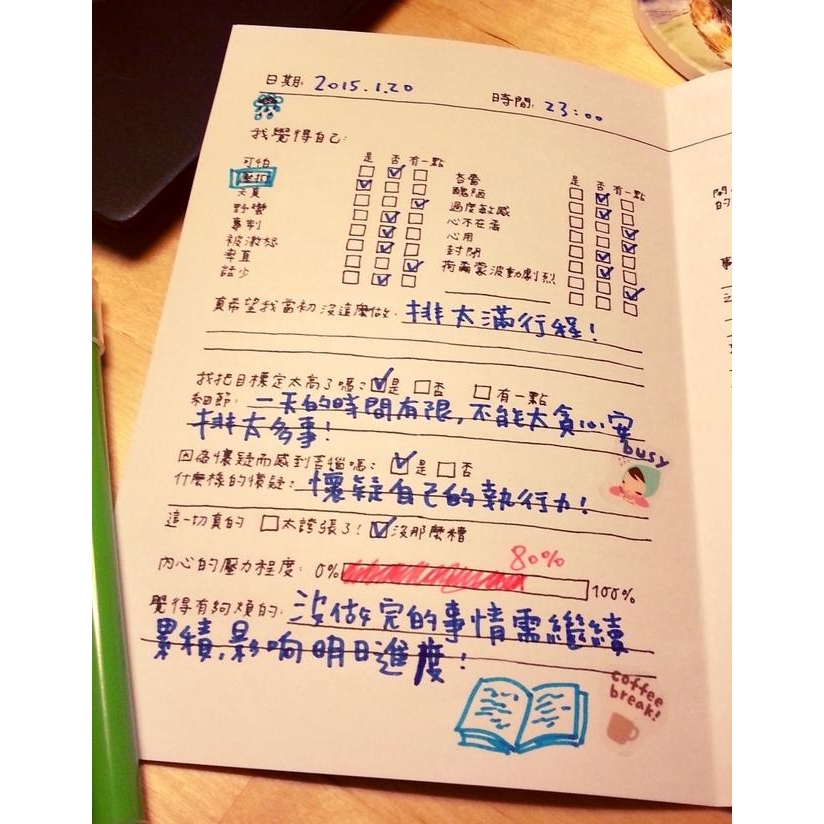 日期: 2015.1.20 時間: 23:00
我覺得自己:
是 否 有一點 是 否 有一點
可怕 吝嗇
醜陋
天真 過度敏感
野蠻 心不在焉
專制 心用
被激怒 封閉
率直 荷爾蒙波動劇烈
話少
真希望我當初沒這麼做: 排太滿行程!
我把目標定太高了嗎? 是 否 有一點
細節: 一天的時間有限,不能太貪心
排太多事!
busy
因為懷疑而感到苦惱嗎: 是 否
什麼樣的懷疑: 懷疑自己的執行力!
這一切真的 太誇張了! 沒那麼糟
80%
內心的壓力程度: 0% 100%
覺得有夠煩的: 沒做完的事情需繼續
累積,影响明日進度!
coffee
break!